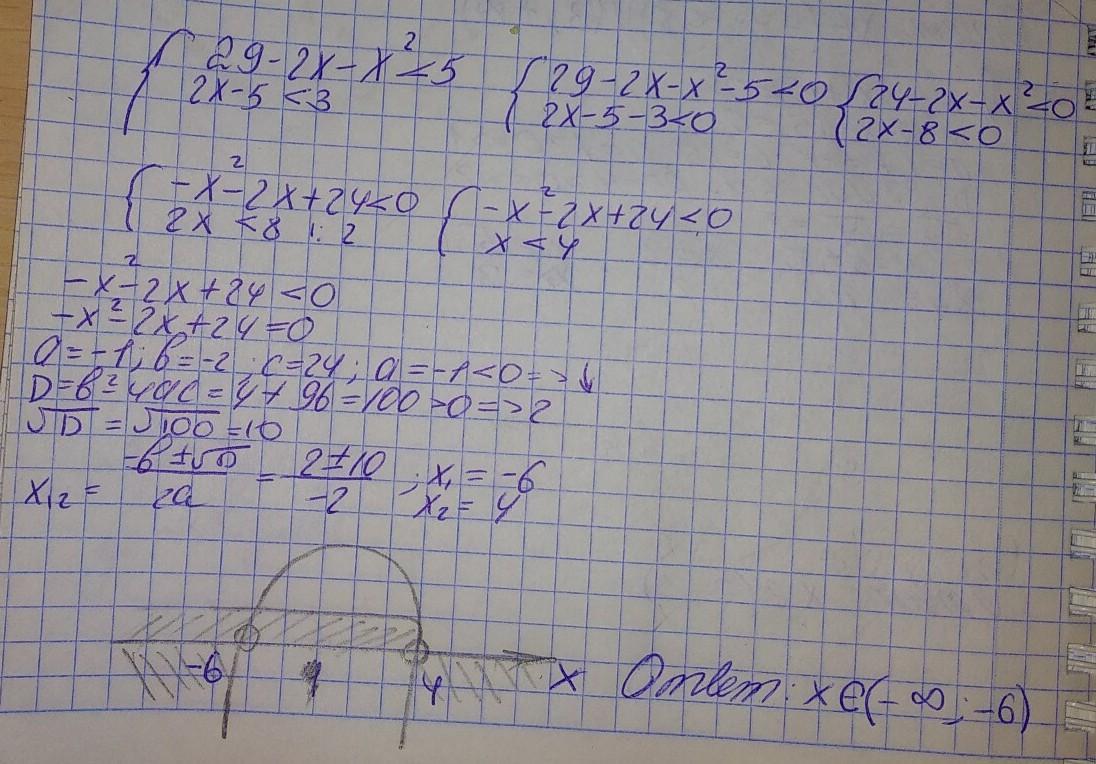 { 29-2x-x²<5 { 29-2x-x²-5<0 { 24-2x-x²<0
2x-5<3 2x-5-3<0 2x-8<0
{ -x²-2x+24<0 { -x²-2x+24<0
2x<8 |:2 x<4
-x²-2x+24<0
-x²-2x+24=0
a=-1; b=-2; c=24; a=-1<0=>↓
D=b²-4ac=4+96=100>0=>2
√D=√100=10
x₁₂= (-b±√D)/2a = (2±10)/-2 ; x₁=-6
x₂=4
-6 4 x Ответ: x∈(-∞;-6)